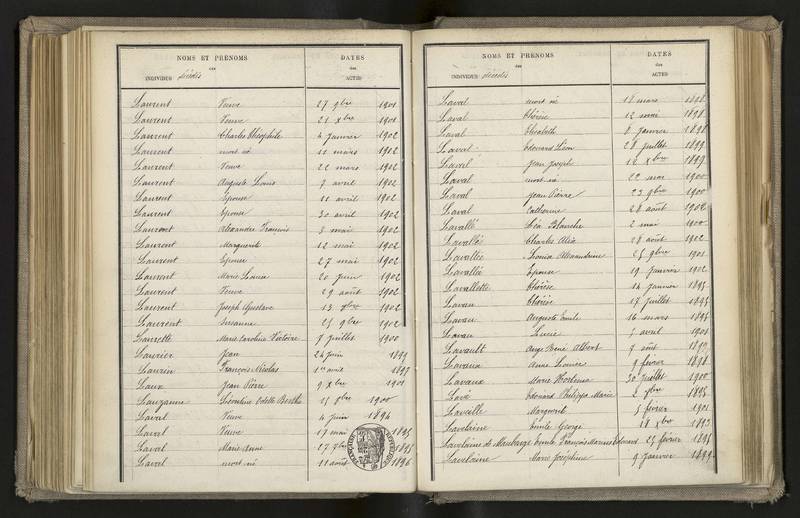 NOMS ET PRÉNOMS
des
INDIVIDUS décédés
DATES
des
ACTES
Laurent Veuve 27 9bre 1901
Laurent Veuve 21 xbre 1901
Laurent Charles Théophile 4 janvier 1902
Laurent mort né 11 mars 1902
Laurent Veuve 22 mars 1902
Laurent Auguste Louis 9 avril 1902
Laurent Epouse 11 avril 1902
Laurent Epouse 30 avril 1902
Laurent Alexandre François 3 mai 1902
Laurent Marguerite 12 mai 1902
Laurent Epouse 27 mai 1902
Laurent Marie Louise 20 juin 1902
Laurent Veuve 29 août 1902
Laurent Joseph Gustave 13 1902
Laurent Susanne 25 9bre 1902
Marie Caroline Victoire 9 juillet 1900
Laurier Jean 24 juin 1899
François Nicolas 1er avril 1897
Laux Jean Pierre 9 xbre 1901
Lauzanne Odette Berthe 15 1900
Laval Veuve 4 juin 1894
Laval Veuve 17 mai 1895
Laval Marie Anne 27 1895
Laval mort né 11 août 1896
NOMS ET PRÉNOMS
des
INDIVIDUS décédés
DATES
des
ACTES
Laval mort né 18 mars 1898
Laval Thérèse 12 mai 1898
Laval Elisabeth 8 janvier 1898
Laval Edouard Léon 28 juillet 1899
Laval Jean Joseph 12 xbre 1899
Laval mort né 22 mai 1900
Laval Jean Pierre 23 9bre 1900
Laval Catherine 28 août 1902
Lavallé Léa Blanche 2 mai 1900
Lavallée Charles Alix 28 août 1902
Lavallée Alexandrine 25 9bre 1901
Lavallé Epouse 19 janvier 1902
Lavallette Thérèse 14 janvier 1895
Lavau Thérèse 17 juillet 1895
Lavau Auguste Emile 16 mars 1895
Lavau Lucie 5 avril 1901
Lavault Ange René Albert 9 août
Lavaux Anne Louise 9 février 1898
Lavaux Marie Hortense 30 juillet 1900
Lave Edouard Philippe Marie 2 1895
Laveille Marguerite 5 février 1901
Lavelaine Emile George 18 xbre 1893
Lavelaine de Maubeuge Emile François Marie Edouard 25 février 1895
Lavelaine Marie Joséphine 9 janvier 1899